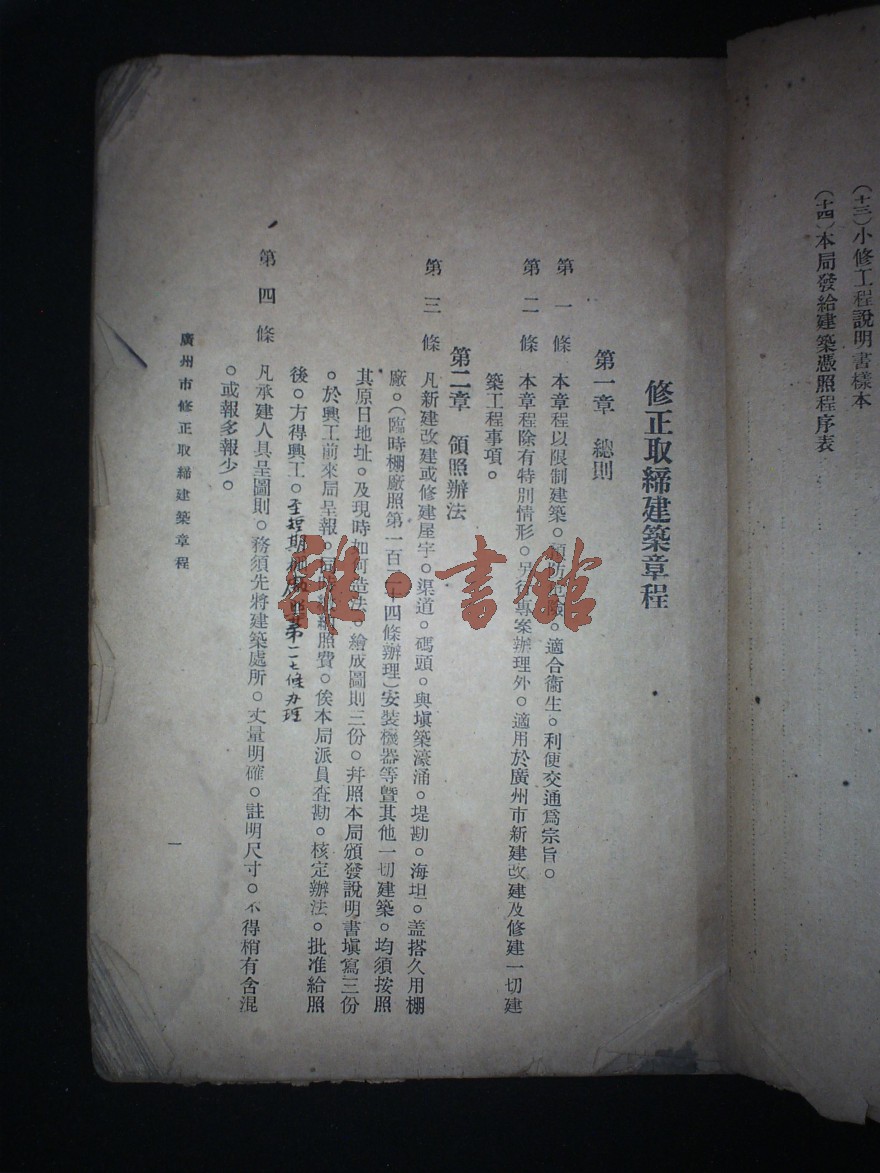 (十三)小修工程說明書樣本
(十四)本局發給建築憑照程序表
修正取締建築章程
第一章 總則
第一條 本章程以限制建築。預防危險。適合衞生。利便交通爲宗旨。
第二條 本章程除有特別情形。另行專案辦理外。適用於廣州市新建改建及修建一切建
築工程事項。
第二章 領照辦法
第三條 凡新建改建或修建屋宇。渠道。碼頭。與塡築濠涌。堤勘。海坦。盖搭久用棚
廠。(臨時棚廠照第一百二十四條辦理)安裝機器等曁其他一切建築。均須按照
其原日地址。及現時如何造法。繪成圖則三份。幷照本局頒發說明書塡寫三份
。於興工前來局呈報。同時繳納照費。俟本局派員查勘。核定辦法。批准給照
後。方得興工。至短期棚廠照第二七條办理
第四條 凡承建人具呈圖則。務須先將建築處所。丈量明確。註明尺寸。不得稍有含混
。或報多報少。
廣州市修正取締建築章程
一
雜·書館